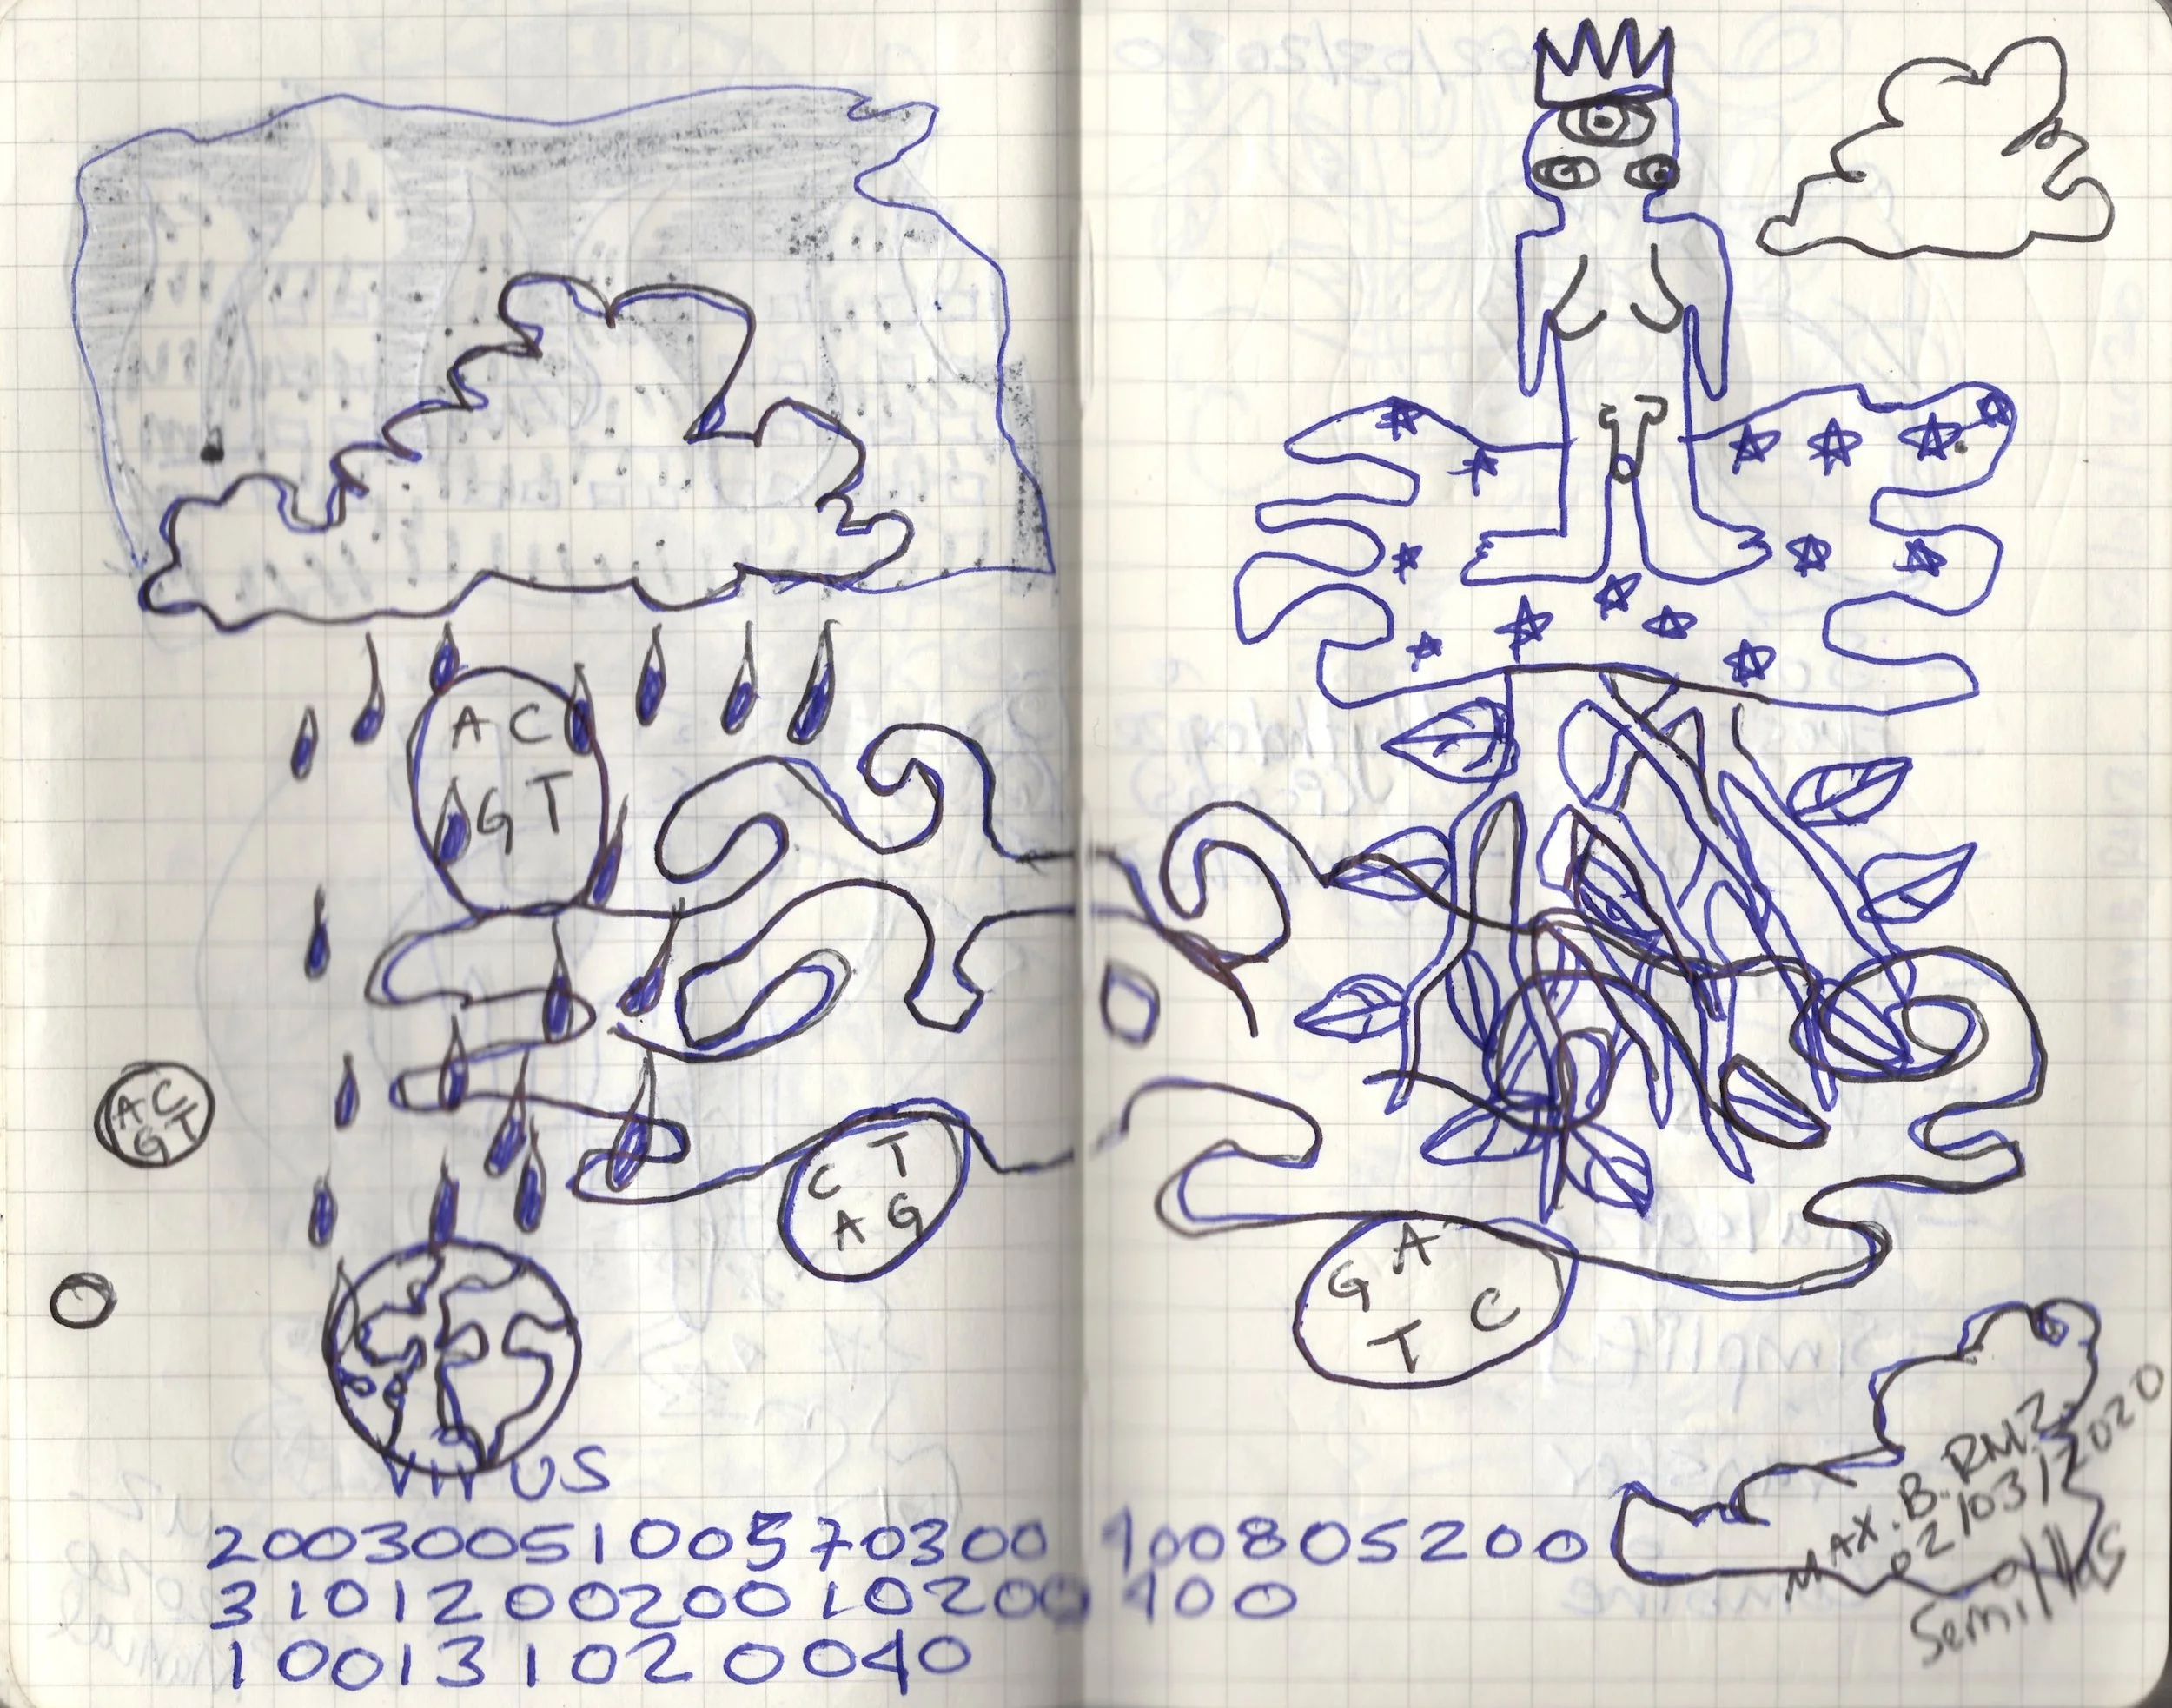 A C
G T
A C
G T
C T
A G
G A
T C
VIRUS
2003005100570300 100805200
31012002001020 0 100
1001310200040
MAX. B. RMZ.
02/03/2020
Semillas